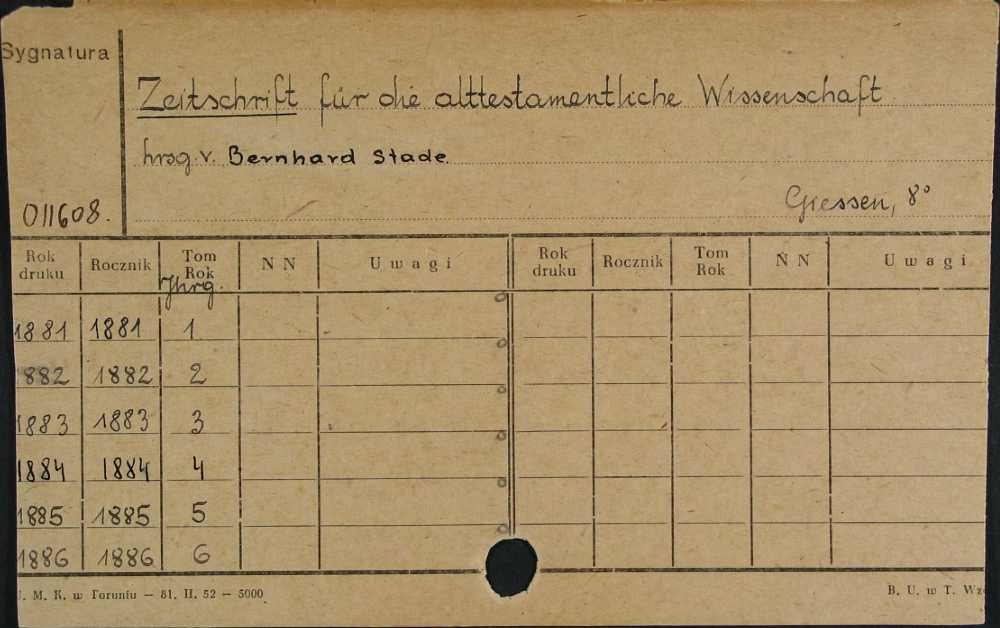 Sygnatura
Zeitschrift für die alttestamentliche Wissenschaft
hrsg v. Bernhard Stade
Giessen, 8°
011608.
Rok druku Rocznik Tom Rok N N Uwagi Rok druku Rocznik Tom Rok N N Uwagi
Jhrg.
1881 1881 1
1882 1882 2
1883 1883 3
1884 1884 4
1885 1885 5
1886 1886 6
U. M. K. w Toruniu — 81. II. 52 — 5000 B. U. w T.